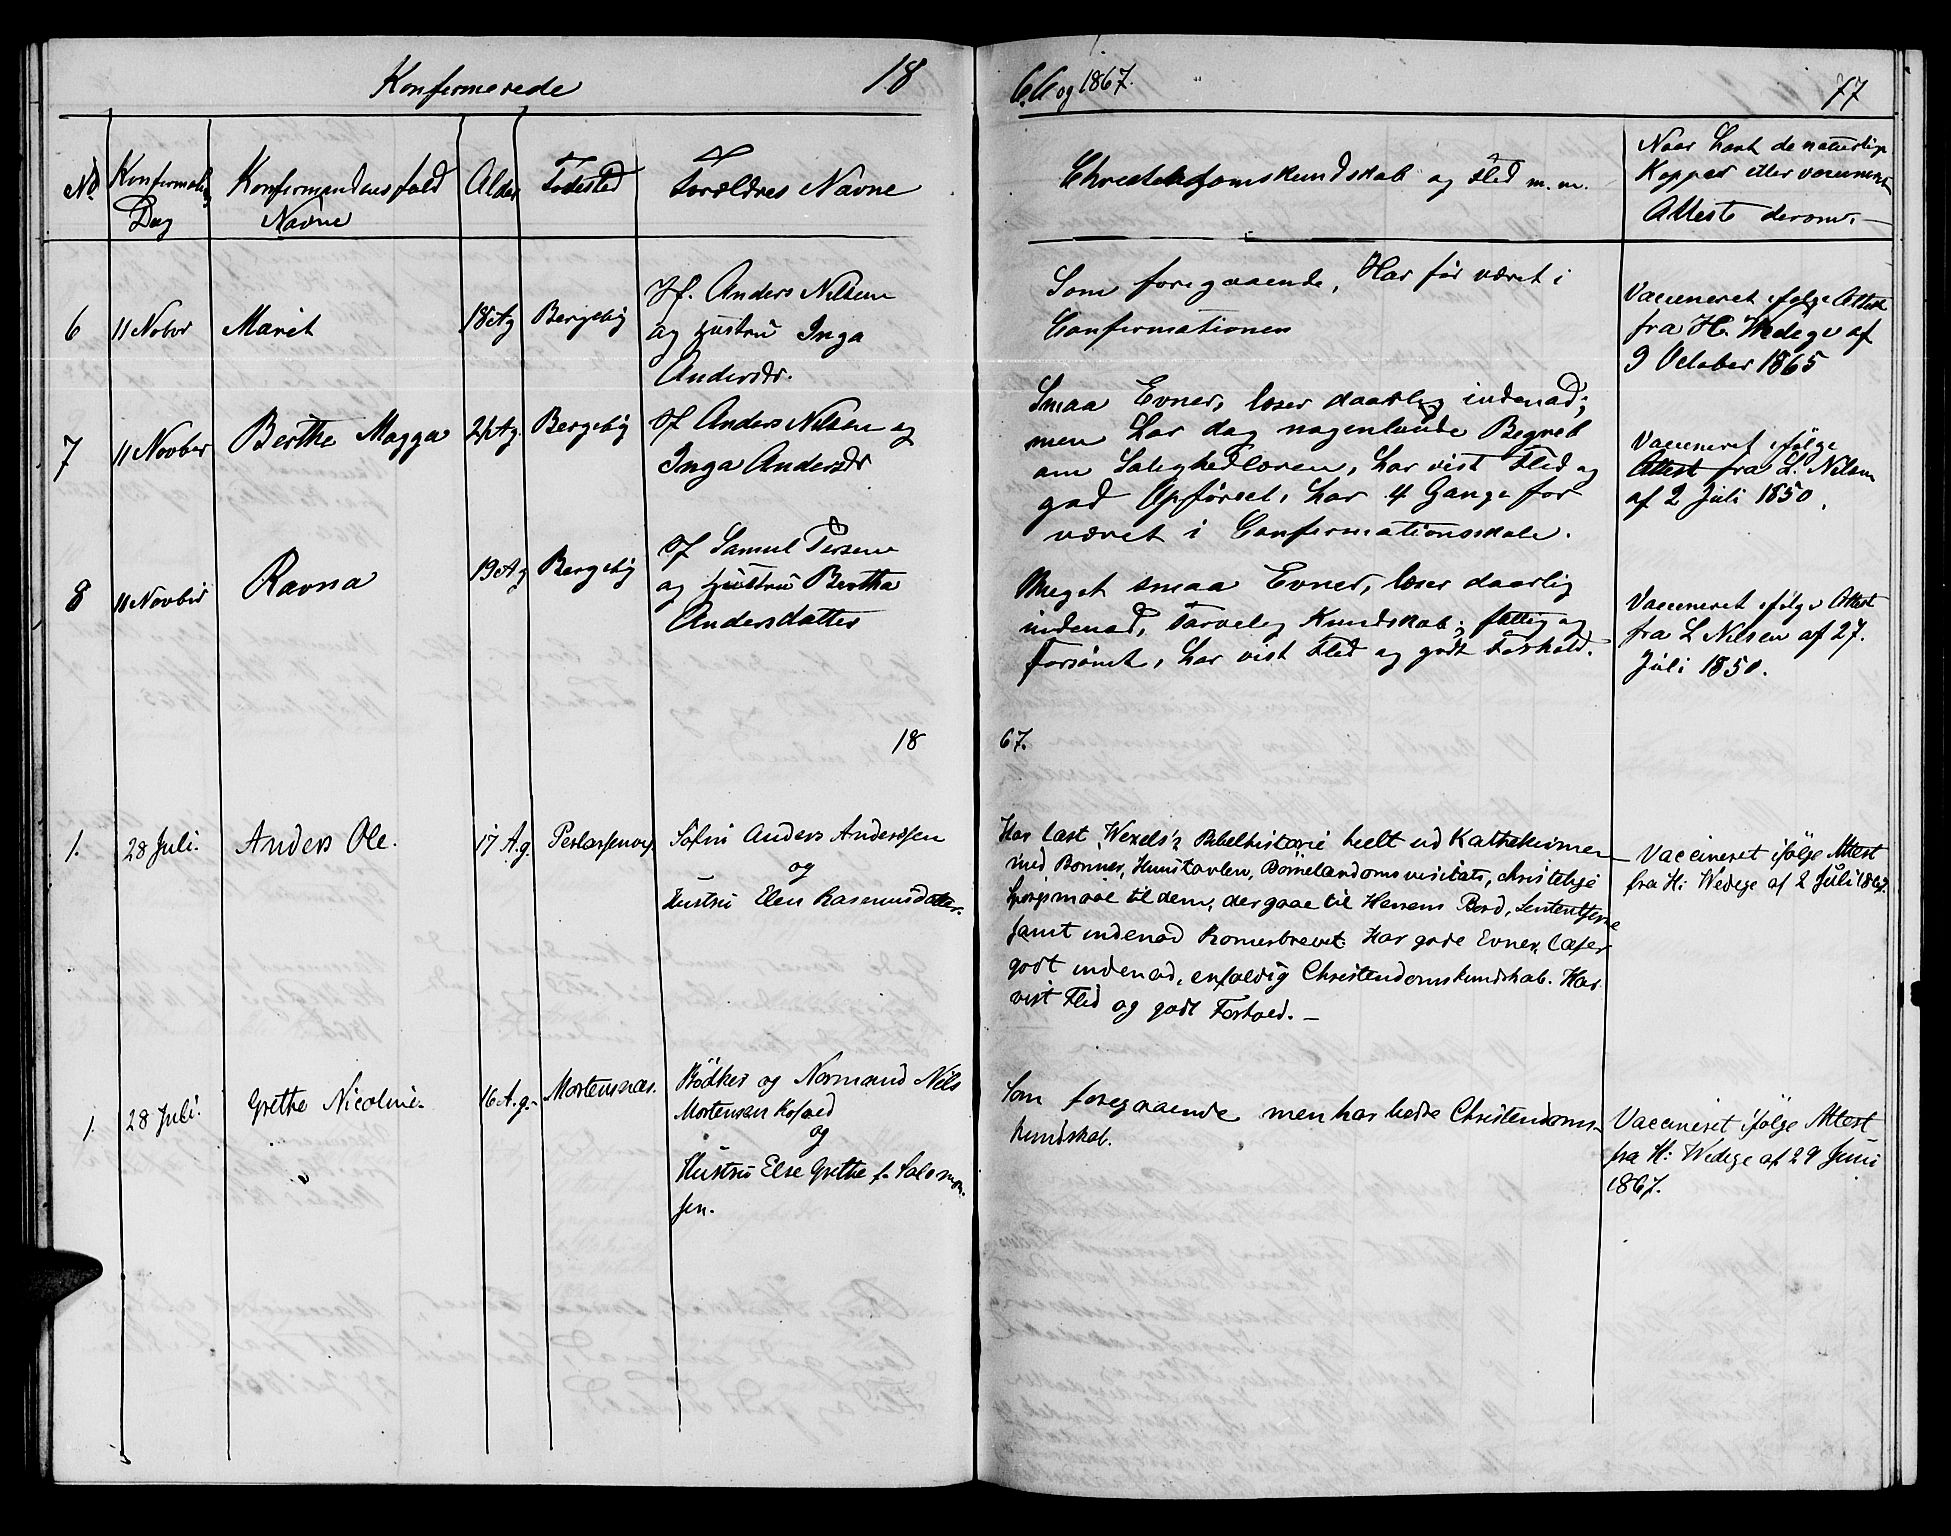 Konfirmerede 18
66 og 1867. 77
No. Konfirmations Dag
Konfirmandens fuld Navne
Alder Fødested Forældres Navne
Christendomskundskab og Flid m.m.
Naar havt de naturlige
Kopper eller vaccineret
Attest derom.
6 11 Novbr Marit 18 Ag Bergeby
Jf. Anders Nilsen
og Hustru Inga
Andersdr.
Som foregaaende, Har før været i
Confirmationen
Vaccineret ifølge Attest
fra H. Wedege af
9 October 1865
7 11 Novber Berthe Magga 21 Ag. Bergeby
Jf Anders Nilsen og
Inga Andersdr
Smaa Evner, læser daarlig indenad;
men har dog nogenlunde Begreb
om Salighedlæren, har vist Flid og
god Opførsel, har 4 Gange før
været i Confirmationsskole.
Vaccineret ifølge
Attest fra L. Nilsen
af 2 Juli 1850.
8 11 Novbir Ravna 19 Ag Bergeby
Jf Samul Persen
og Hustru Bertha
Andersdatter
Meget smaa Evner, læser daarlig
indenad, Tarvelig Kundskab; fattig og
forsømt, har vist Flid og godt Forhold.
Vaccineret ifølge Attest
fra L Nilsen af 27.
Juli 1850.
18 67.
1. 28 Juli. Anders Ole. 17 A.g.
Søfin Anders Anderssen
og
Hustru Elen Rasmusdatter.
Har læst Wexels's Bibelhistorie heelt ud Kathekismen
med Bønner, Hunstavlen, Børnelærdoms visitats, christelige
Spørgsmaal til dem, der gaae til Herrens Bord, Sententserne
samt indenad Romerbrevet. Har gode Evner, læser
godt indenad, enfoldig Christendomskundskab. Har
vist Flid og godt Forhold. —
Vaccineret ifølge Attest
fra H: Wedege af 2 Juli 1867.
1 28 Juli. Grethe Nicoline. 16 A.g. Mortensnæs.
Bødker og Normand Nils
Mortensen Kofoed
og
Hustru Else Grethe f. Salomon-
sen.
Som foregaaende men har bedre Christendoms-
kundskab.
Vaccineret ifølge Attest
fra H: Wedege af 29 Juni
1867.